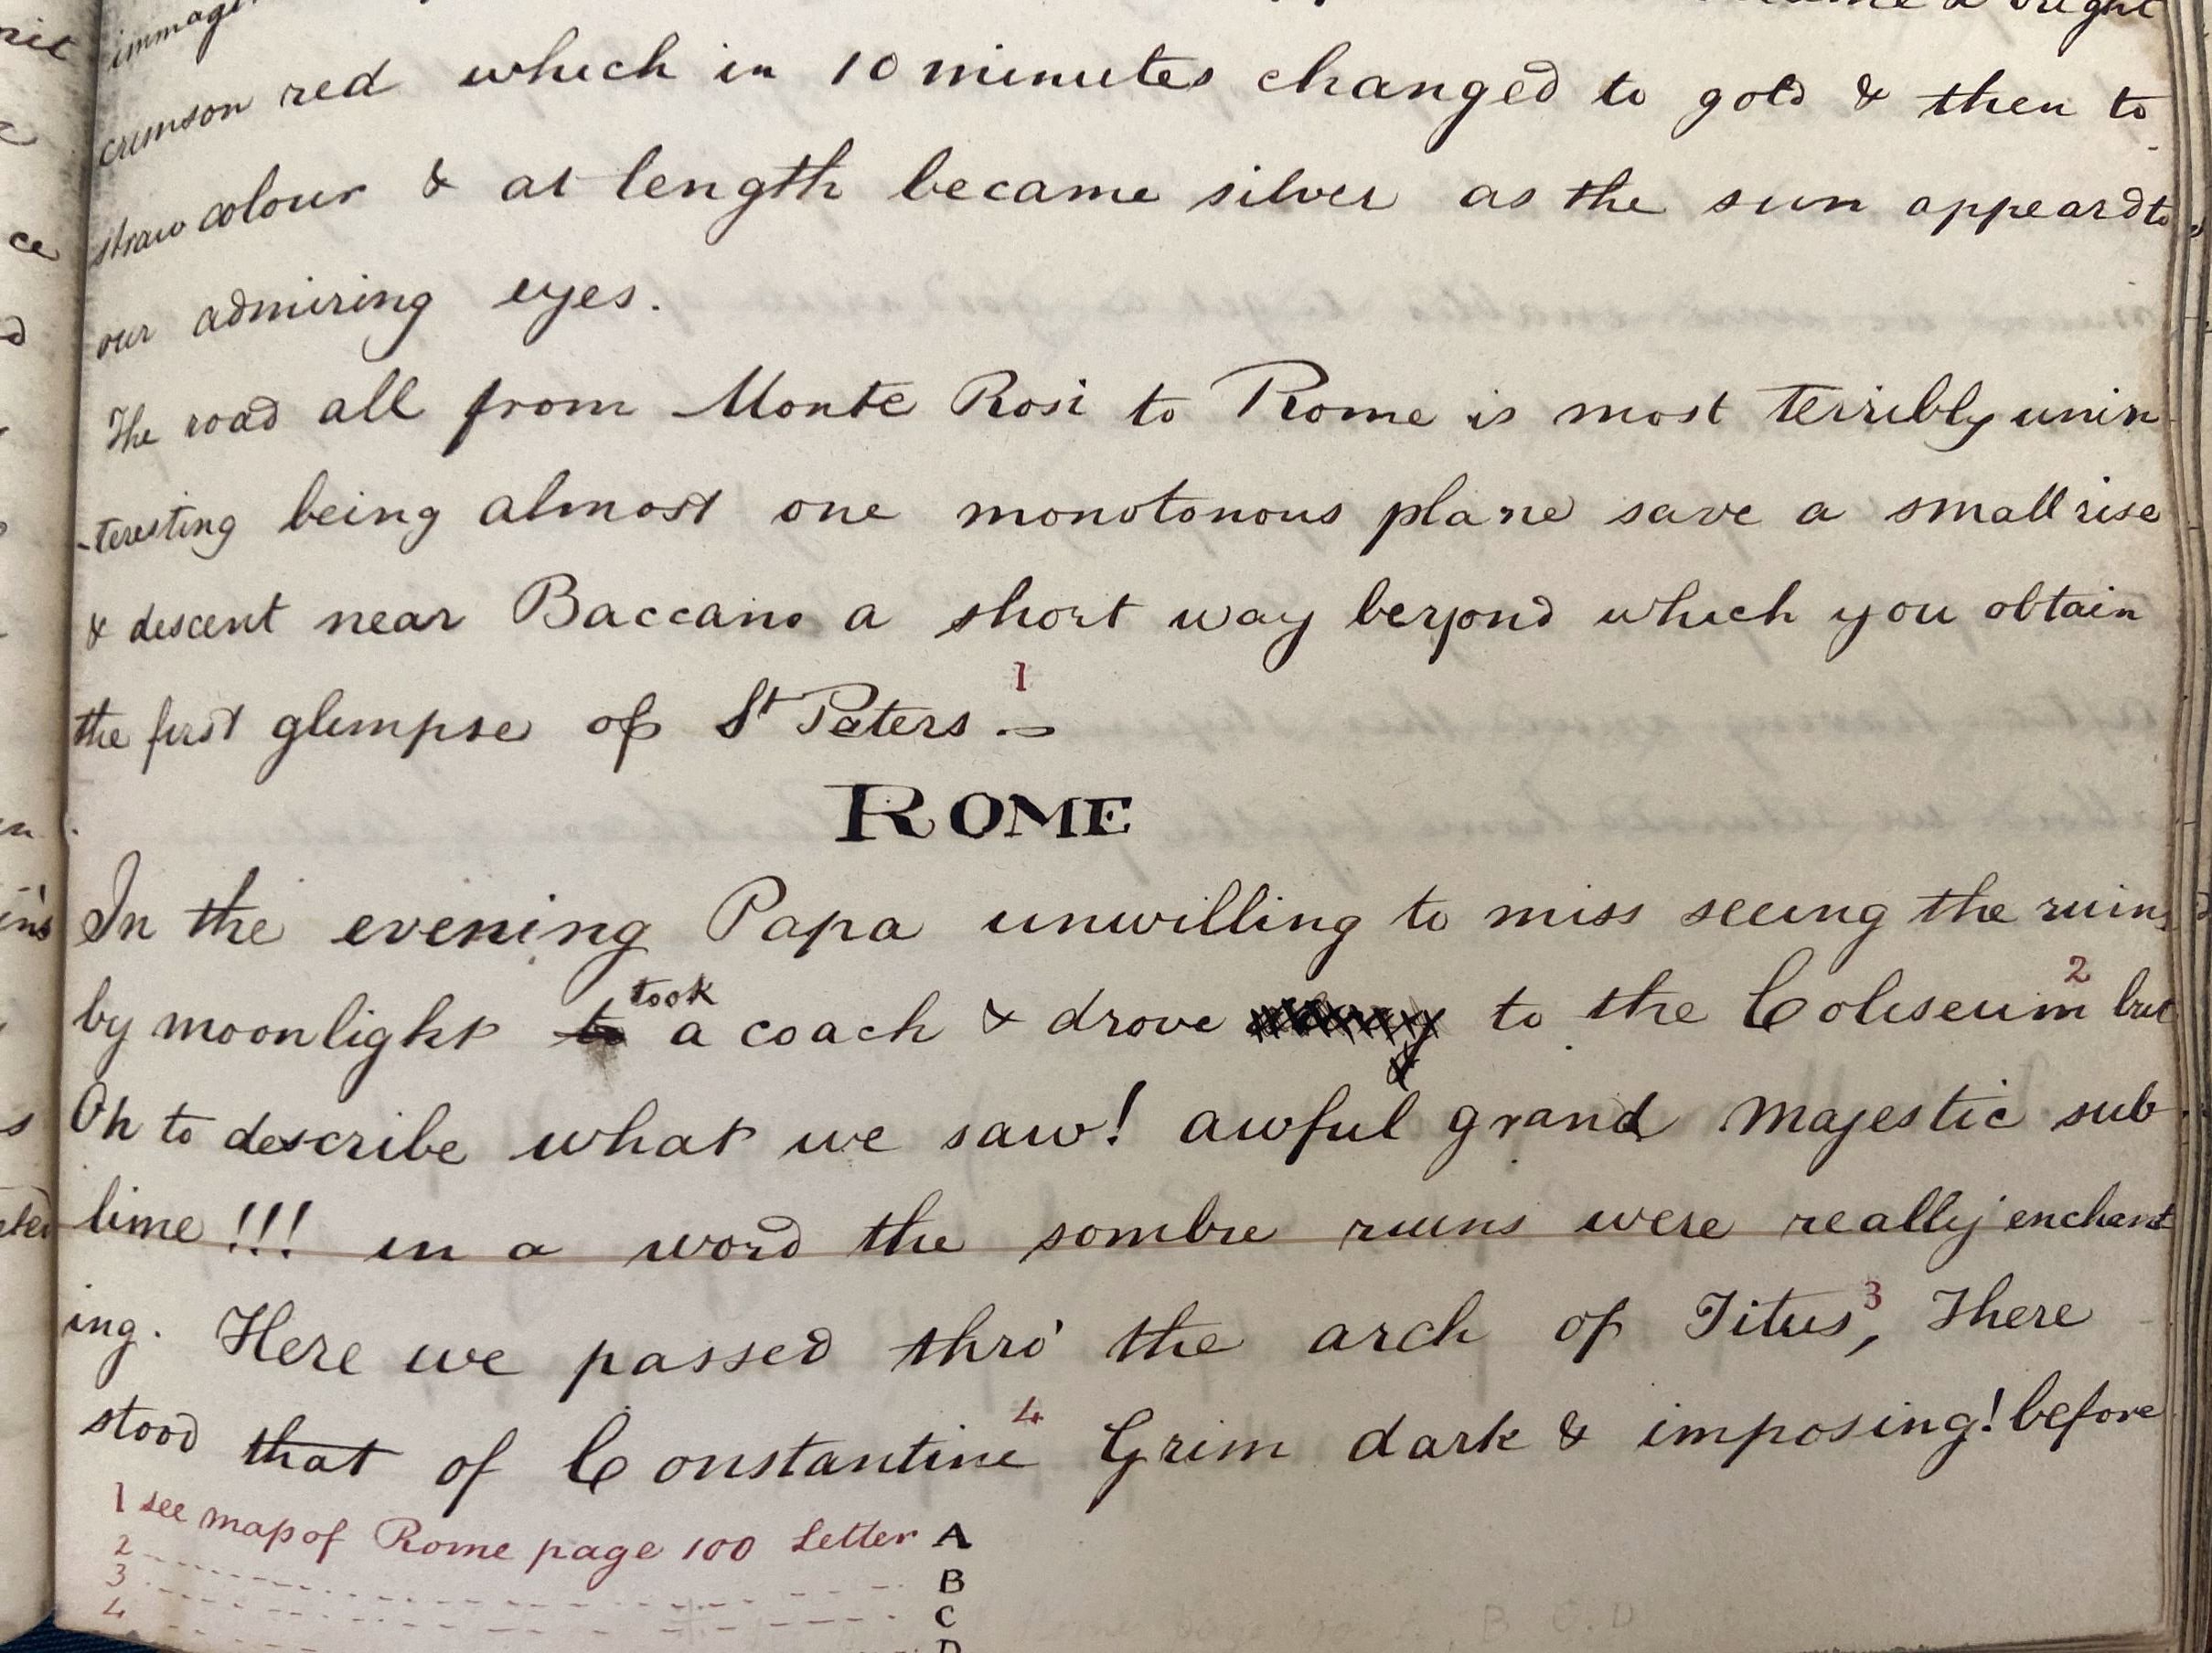 immagi
crimson red which in 10 minutes changed to gold & then to
straw colour & at length became silver as the sun appeard to
our admiring eyes.
The road all from Monte Rosi to Rome is most terribly unin
-teresting being almost one monotonous plane save a small rise
& descent near Baccano a short way beyond which you obtain
the first glimpse of St Peters 1 .=
ROME
In the evening Papa unwilling to miss seeing the ruins
by moonlight to took a coach & drove to the Coliseum 2 but
Oh to describe what we saw! awful grand majestic sub
lime !!! in a word the sombre ruins were really enchant
ing. Here we passed thro' the arch of Titus 3, There
stood that of Constantine 4 Grim dark & imposing! before
1 see map of Rome page 100 Letter A
2 B
3 C
4 D